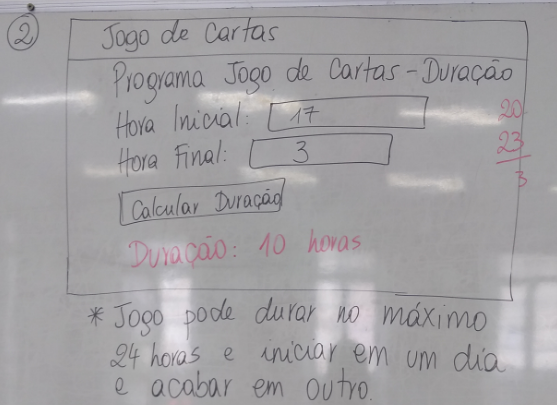 2
Jogo de Cartas
Programa Jogo de Cartas - Duração
Hora Inicial: 17
20
Hora Final: 3
23
3
Calcular Duração
Duração: 10 horas
* Jogo pode durar no máximo
24 horas e iniciar em um dia
e acabar em outro.